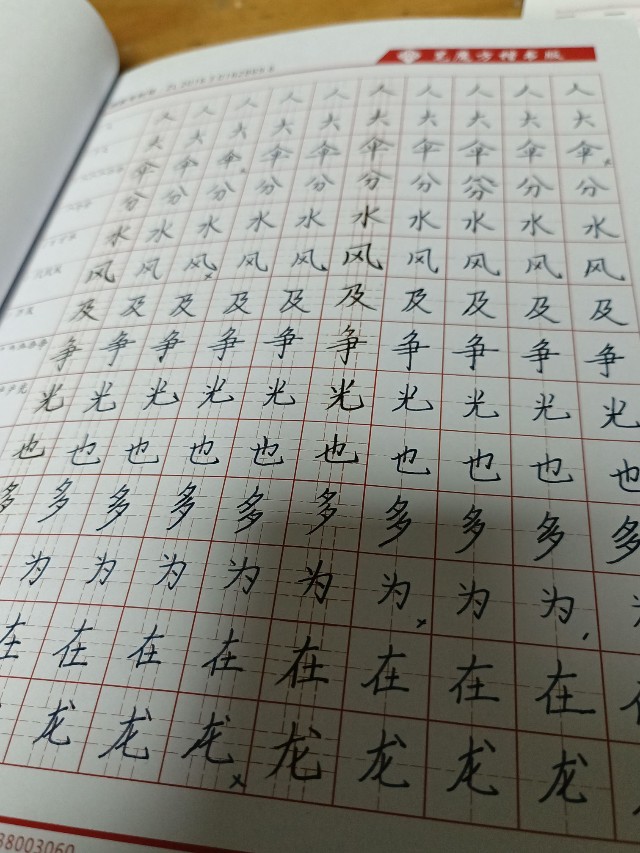 艺魔方楷书版
人人人人人人人人人人
大大大大大大大大大大
伞伞伞伞伞伞伞伞伞伞
分分分分分分分分分分
水水水水水水水水水水
风风风风风风风风风风
及及及及及及及及及及
争争争争争争争争争争
光光光光光光光光光光
也也也也也也也也也也
多多多多多多多多多多
为为为为为为为为
在在在在在在在在
龙龙龙龙龙龙龙
38003060